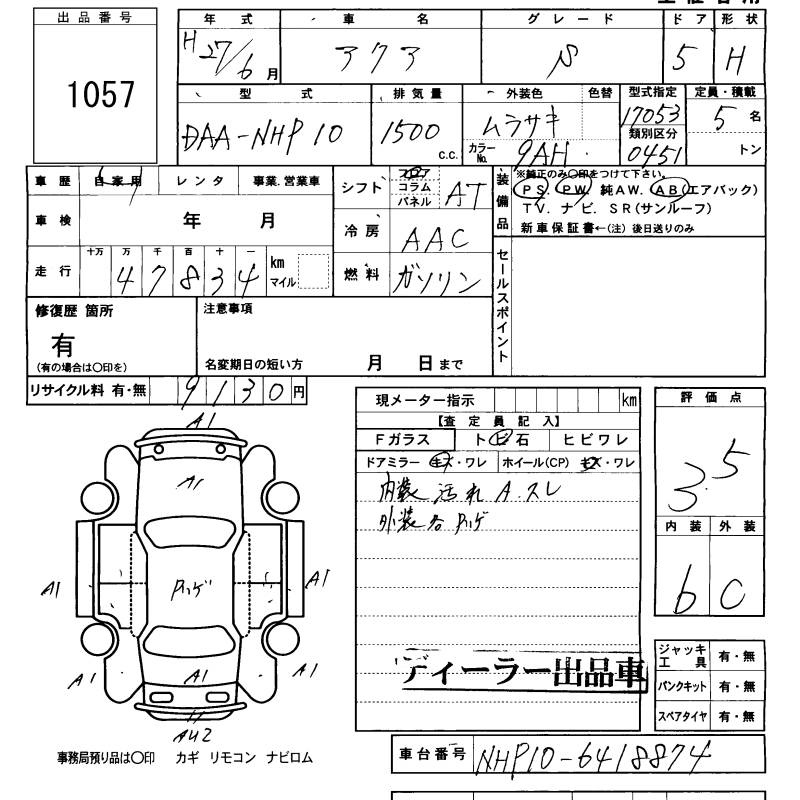 出品番号
1057
年式 車名 グレード ドア 形状
H 27/6月 アクア S 5 H
型式 排気量 外装色 色替 型式指定 定員・積載
DAA-NHP10 1500 c.c. ムラサキ 17053 5名
カラーNo. 9AH 類別区分 0451 トン
車歴 自家用 レンタ 事業.営業車
車検 年 月
十万 万 千 百 十 一
走行 4 7 8 3 4 km マイル
シフト フロア コラム パネル AT
冷房 AAC
燃料 ガソリン
装備品
※純正のみ○印をつけて下さい。
PS. PW. 純AW. AB(エアバック)
TV. ナビ. SR(サンルーフ)
新車保証書←(注) 後日送りのみ
セールスポイント
修復歴 箇所
有
(有の場合は○印を)
注意事項
名変期日の短い方 月 日まで
リサイクル料 有・無 9130円
現メーター指示 km
【査定員記入】
Fガラス トビ石 ヒビワレ
ドアミラー キズ・ワレ ホイール(CP) キズ・ワレ
内装 汚れ A.スレ
外装 各 Pハゲ
ディーラー出品車
評価点
3.5
内装 外装
6 C
A1
A1
Pハゲ
A1 A1
A1 A1 A1
AU2
ジャッキ工具 有・無
パンクキット 有・無
スペアタイヤ 有・無
事務局預り品は○印 カギ リモコン ナビロム
車台番号 NHP10-6418874